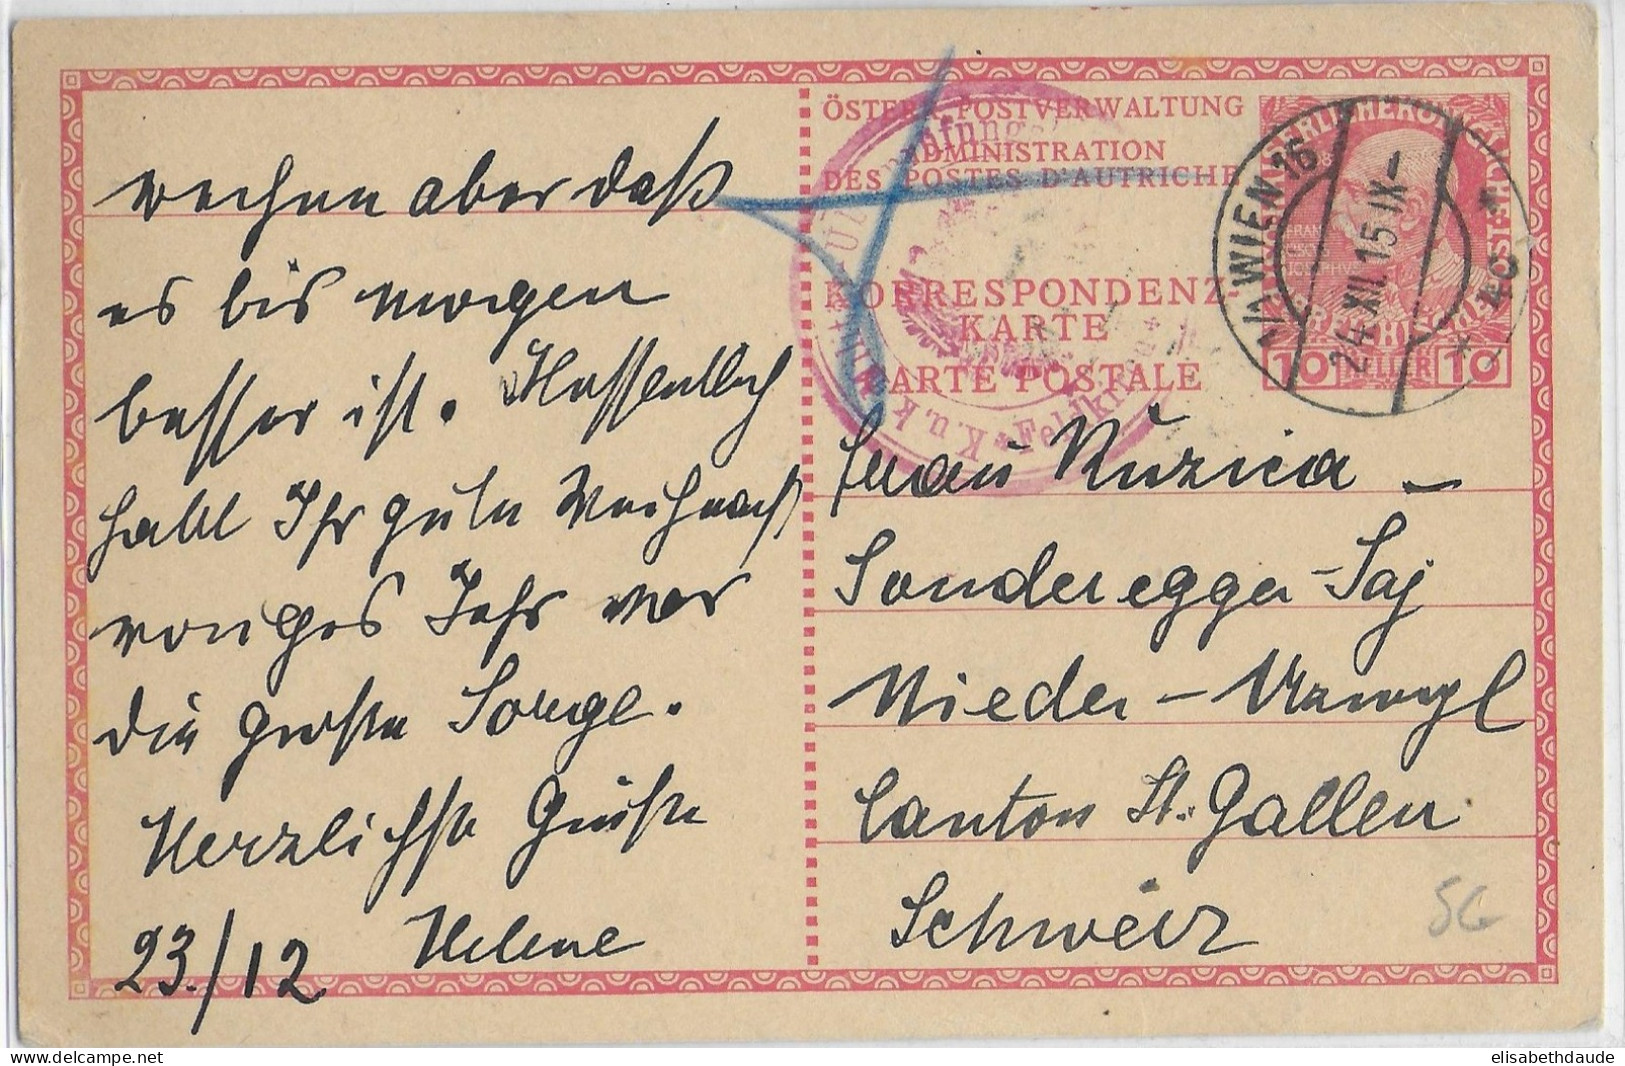 rechne aber daß
es bis morgen
besser ist. Hoffentlich
habt Ihr gute Weihnacht
voriges Jahr war
die große Sorge.
Herzlichste Grüße
23./12 Helene
ÖSTERR. POSTVERWALTUNG
ADMINISTRATION
DES POSTES D'AUTRICHE
KORRESPONDENZ-
KARTE
CARTE POSTALE
1/1 WIEN 16
24.XII.15 IX-
* 40 *
10 HELLER 10
K.u.k. Militär Überprüfungs
Feldkirch
Frau Ruzica -
Sonderegger-Saj
Nieder-Uzwyl
Canton St. Gallen
Schweiz
56
delcampe.net
elisabethdaude